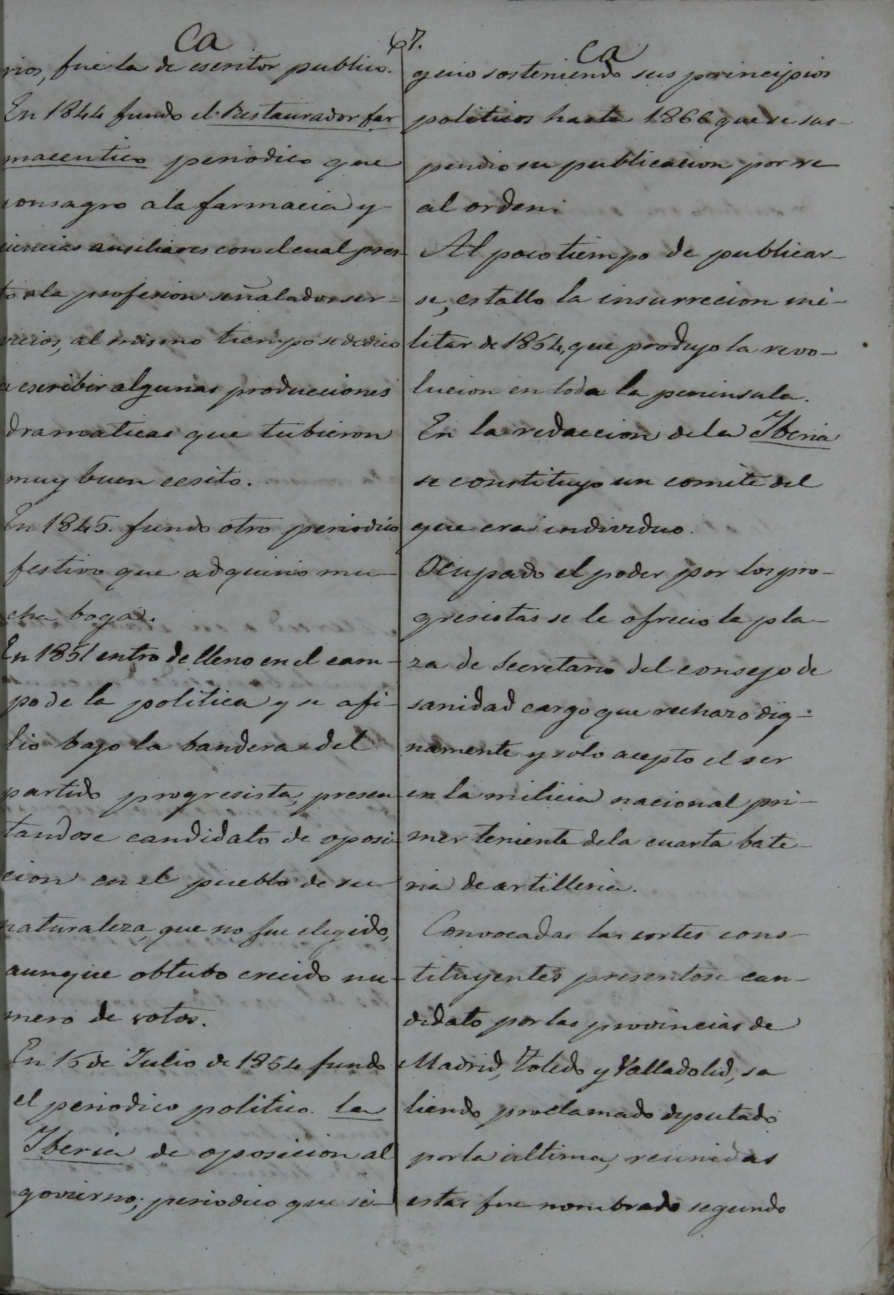 Ca
67.
Ca
rios, fue la de escritor publico.
En 1844 fundo el Restaurador far
maceutico periodico que
consagro a la farmacia y
ciencias ausiliares con el cual pres-
to a la profesion señalados ser-
vicios, al mismo tiempo se dedico
a escribir algunas producciones
dramaticas que tubieron
muy buen ecsito.
En 1845. fundo otro periodico
festivo que adquirio mu-
cha boga.
En 1851 entro de lleno en el cam-
po de la politica y se afi-
lio bajo la bandera del
partido progresista, presen
tandose candidato de oposi
cion en el pueblo de su
naturaleza, que no fue elegido,
aunque obtubo crecido nu-
mero de votos.
En 15 de Julio de 1854 fundo
el periodico politico la
Iberia de oposicion al
govierno; periodico que si-
guio sosteniendo sus principios
politicos hasta 1866 que se sus-
pendio su publicacion por re
al orden.
Al poco tiempo de publicar-
se, estallo la insurrecion mi-
litar de 1854, que produjo la revo-
lucion en toda la peninsula.
En la redaccion de la Iberia
se constituyo un comite del
que era individuo.
Ocupado el poder por los pro-
gresistas se le ofrecio la pla-
za de Secretario del consejo de
sanidad cargo que rechazo dig-
namente y solo acepto el ser
en la milicia nacional pri-
mer teniente de la cuarta bate-
ria de artilleria.
Convocadas las cortes cons-
tituyentes presentose can-
didato por las provincias de
Madrid, Toledo y Valladolid, sa
liendo proclamado diputado
por la ultima, reunidas
estas fue nombrado segundo